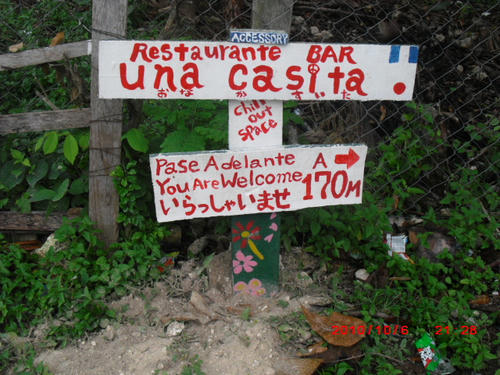 ACCESSORY
Restaurante BAR
una casita!
おなかすいた
chill out
space
Pase Adelante A →
You Are Welcome 170M
いらっしゃいませ
2010/10/6 21:28